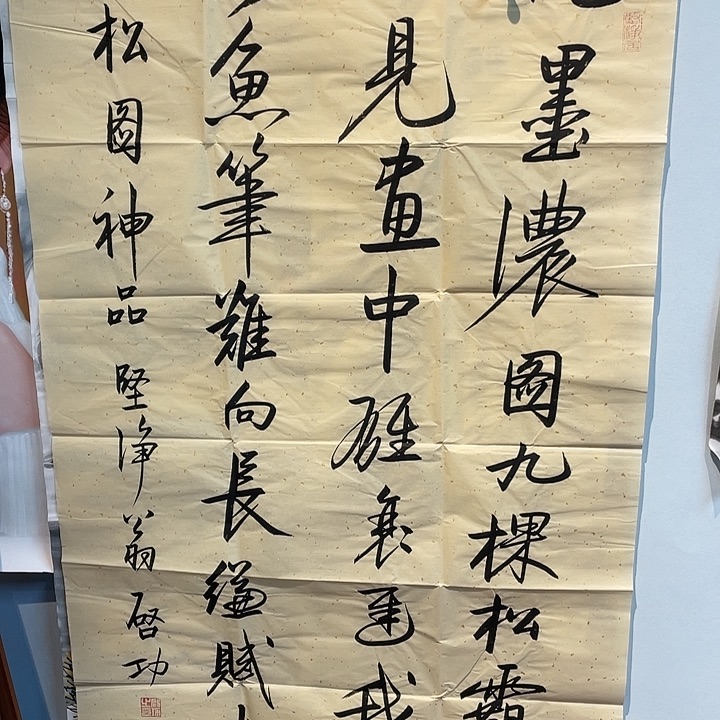 墨濃圖九棵松
見畫中衰遲我
魚筆難向長縑賦
松圖神品 堅淨翁 啟功